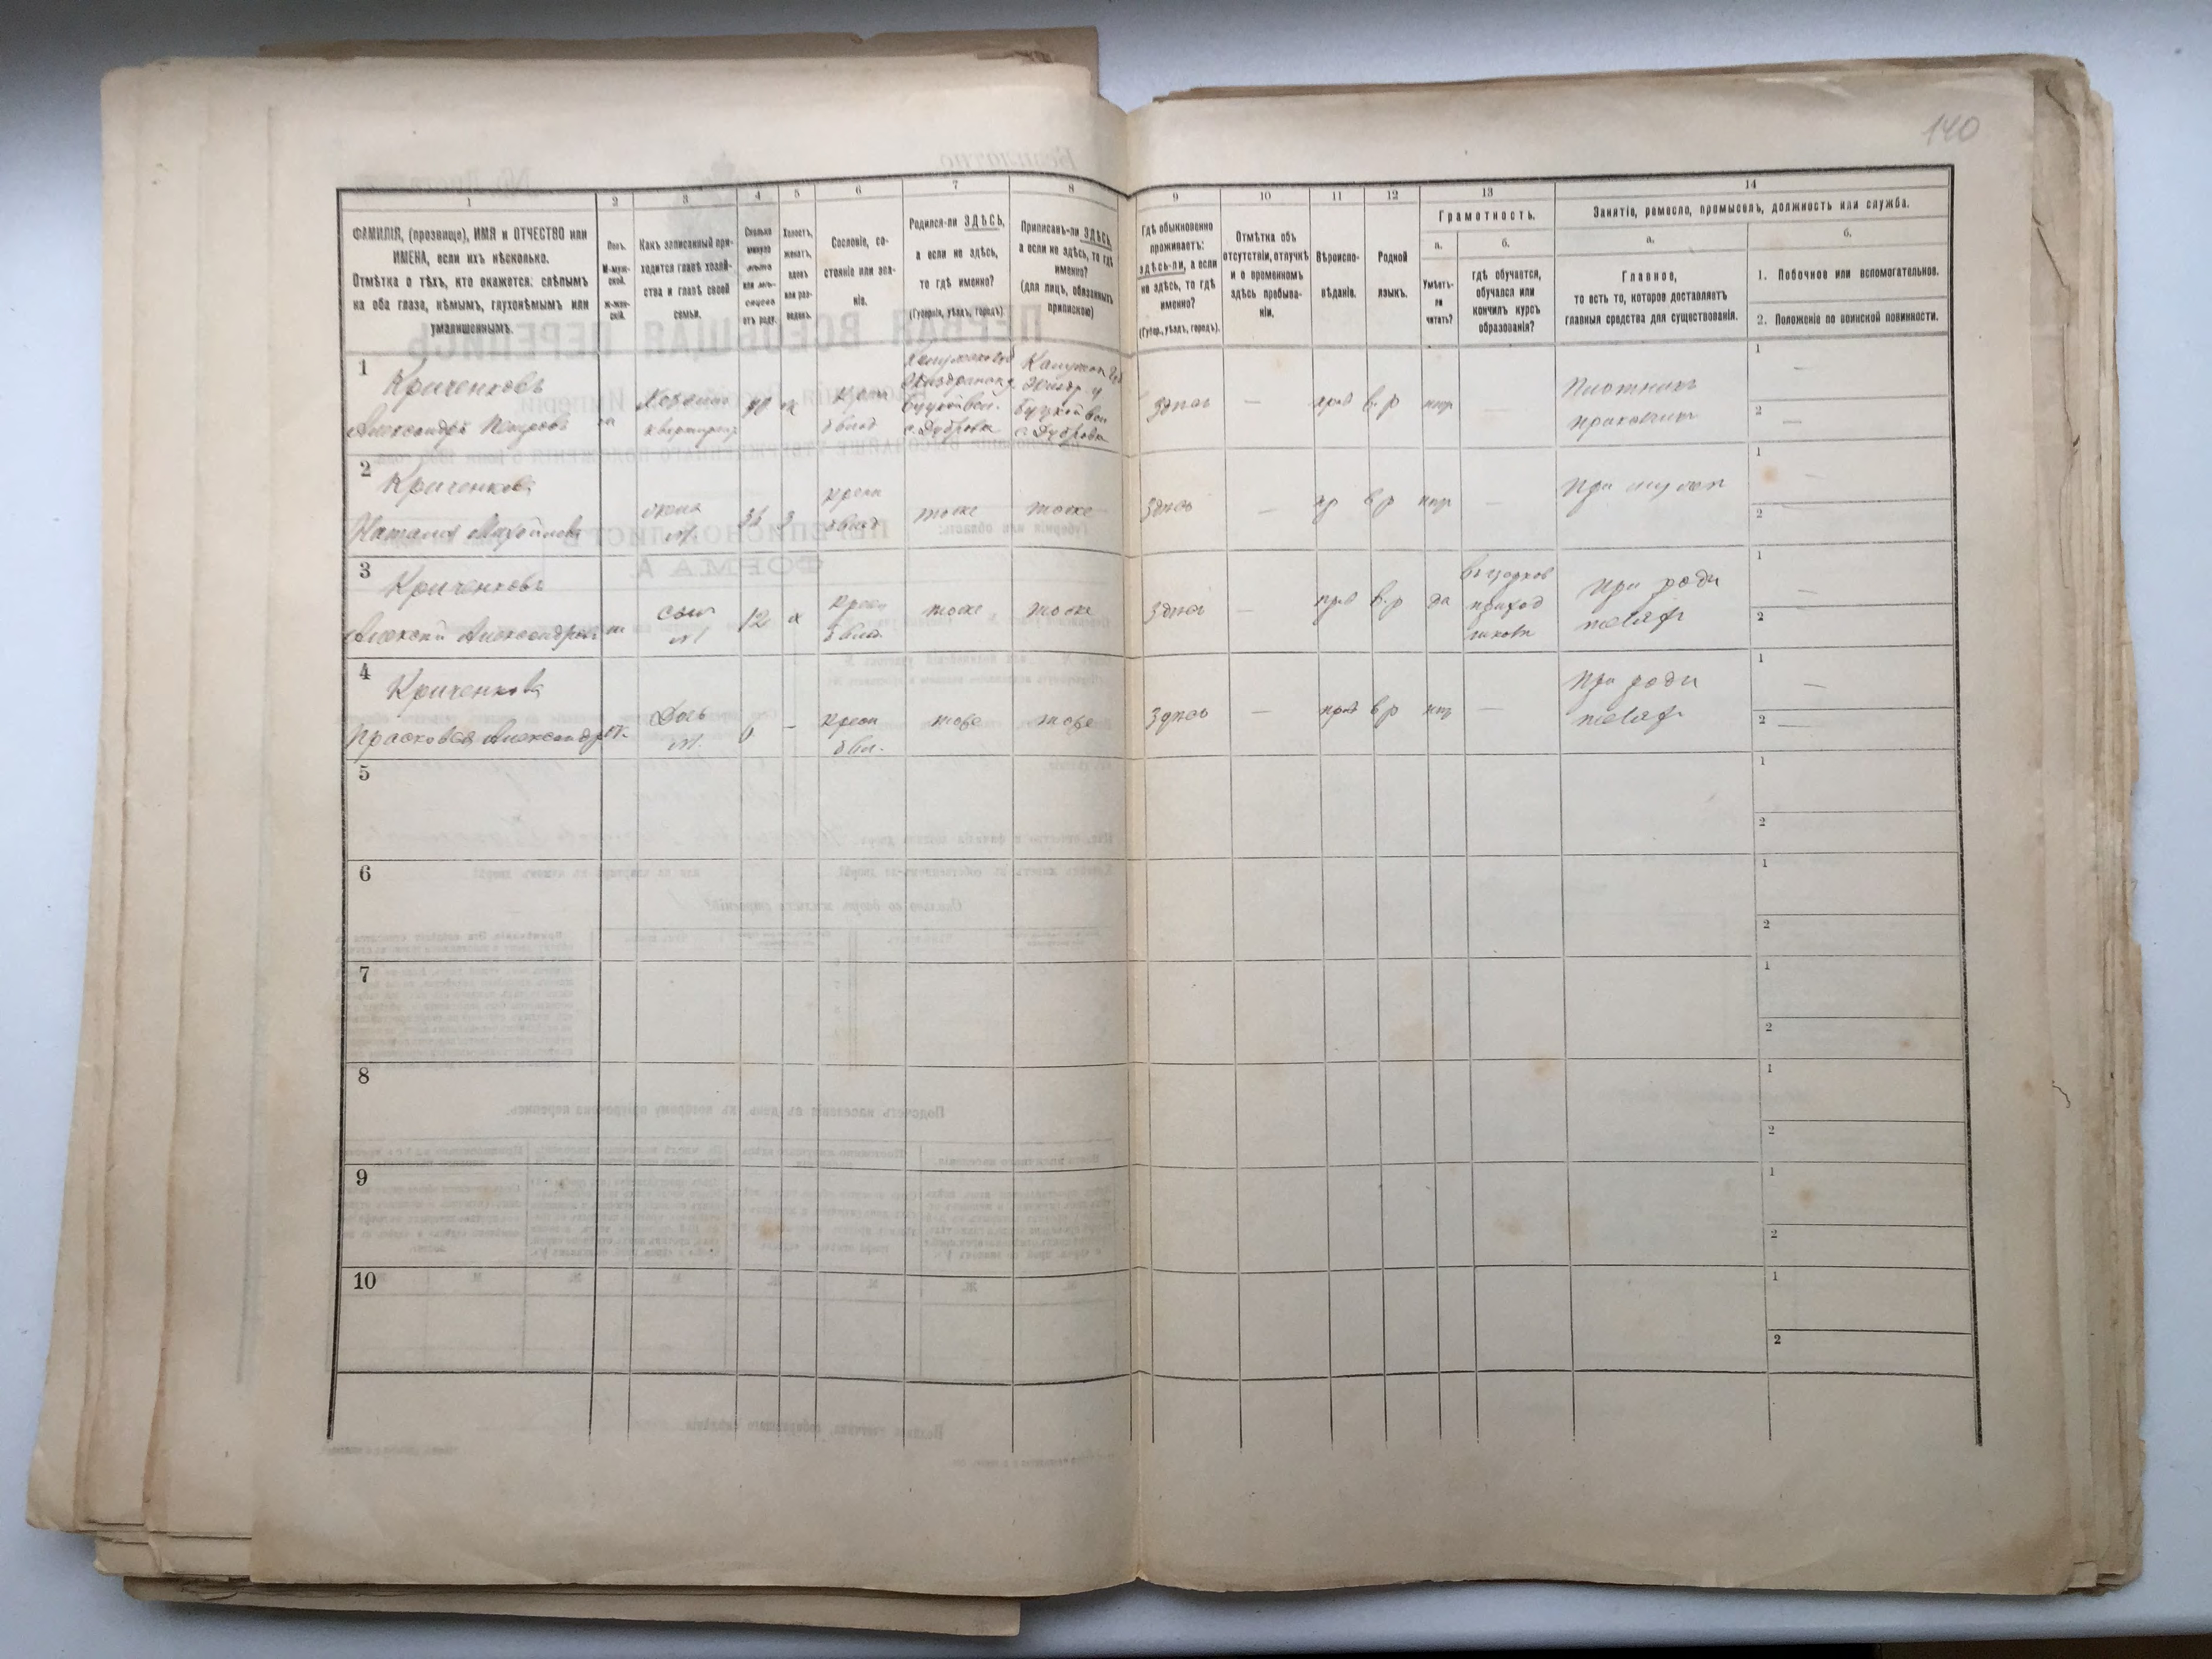 140
1
2
3
4
5
6
7
8
9
10
11
12
13
14
ФАМИЛІЯ, (прозвище), ИМЯ и ОТЧЕСТВО или
ИМЕНА, если ихъ нѣсколько.
Отмѣтка о тѣхъ, кто окажется: слѣпымъ
на оба глаза, нѣмымъ, глухонѣмымъ или
умалишеннымъ.
Полъ.
М-муж-
ской.
Ж-жен-
скій.
Какъ записанный при-
ходится главѣ хозяй-
ства и главѣ своей
семьи.
Сколько
минуло
лѣтъ
или мѣ-
сяцевъ
отъ роду.
Холостъ,
женатъ,
вдовъ
или раз-
веденъ.
Сословіе, со-
стояніе или зва-
ніе.
Родился-ли ЗДѢСЬ,
а если не здѣсь,
то гдѣ именно?
(Губернія, уѣздъ, городъ).
Приписанъ-ли ЗДѢСЬ,
а если не здѣсь, то гдѣ
именно?
(для лицъ, обязанныхъ
припискою)
Гдѣ обыкновенно
проживаетъ:
здѣсь-ли, а если
не здѣсь, то гдѣ
именно?
(Губер., уѣздъ, городъ).
Отмѣтка объ
отсутствіи, отлучкѣ
и о временномъ
здѣсь пребыва-
ніи.
Вѣроиспо-
вѣданіе.
Родной
языкъ.
Грамотность.
а.
Умѣетъ-
ли
читать?
б.
гдѣ обучается,
обучался или
кончилъ курсъ
образованія?
Занятіе, ремесло, промыселъ, должность или служба.
а.
Главное,
то есть то, которое доставляетъ
главныя средства для существованія.
б.
1. Побочное или вспомогательное.
2. Положеніе по воинской повинности.
1
Криченковъ
Александръ Петровъ
м
Хозяинъ
квартиры
40
ж
крест
б влад
Калужской
Жиздринск у
Буцкой вол.
с. Дубровка
Калужск Губ
Жиздр. у
Буцкой вол
с. Дубровка
Здѣсь
—
прав
в.р
нѣт
—
Плотникъ
1
2
2
Криченкова
Наталья
жена
36
З
крест
б влад
тоже
тоже
Здѣсь
—
пр
в р
нѣт
—
При мужѣ
1
2
3
Криченковъ
Алексѣй Александров
м
сын
12
х
крест
б вла.
тоже
тоже
Здѣсь
—
прав
в.р
да
въ церков
приход
школѣ
при роди
теляхъ
1
2
4
Криченкова
Прасковья Александр
Дочь
6
—
крест
б вл.
тоже
тоже
Здѣсь
—
прав
в р
нѣт
—
При роди
теляхъ
1
2
5
1
2
6
1
2
7
1
2
8
1
2
9
1
2
10
1
2